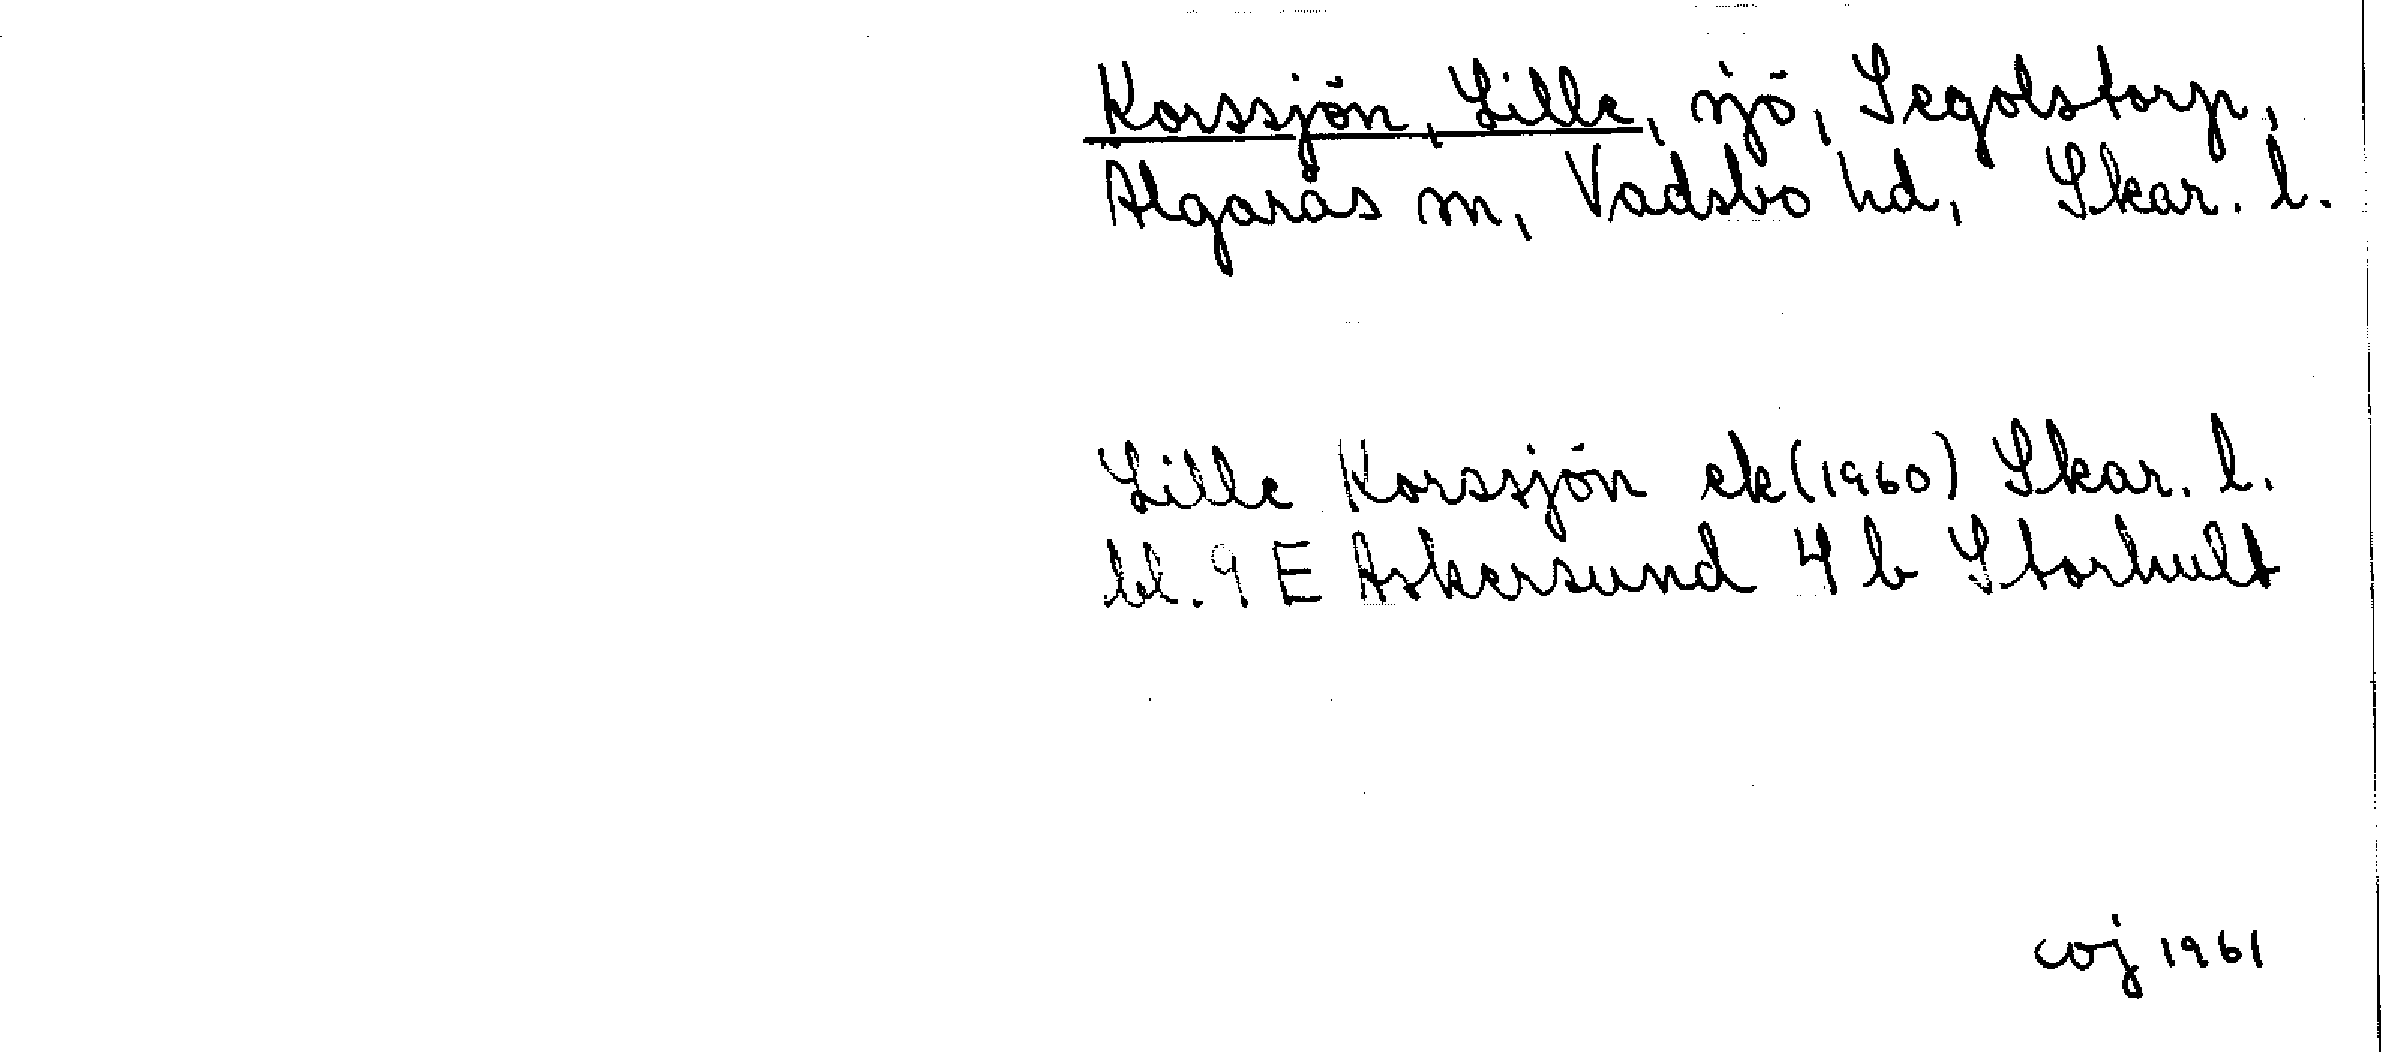 Korssjön, Lille, sjö, Segolstorp,
Älgarås sn, Vadsbo hd, Skar. l.
Lille Korssjön ek (1960) Skar. l.
bl. 9 E Askersund 4 b Storhult
coj 1961